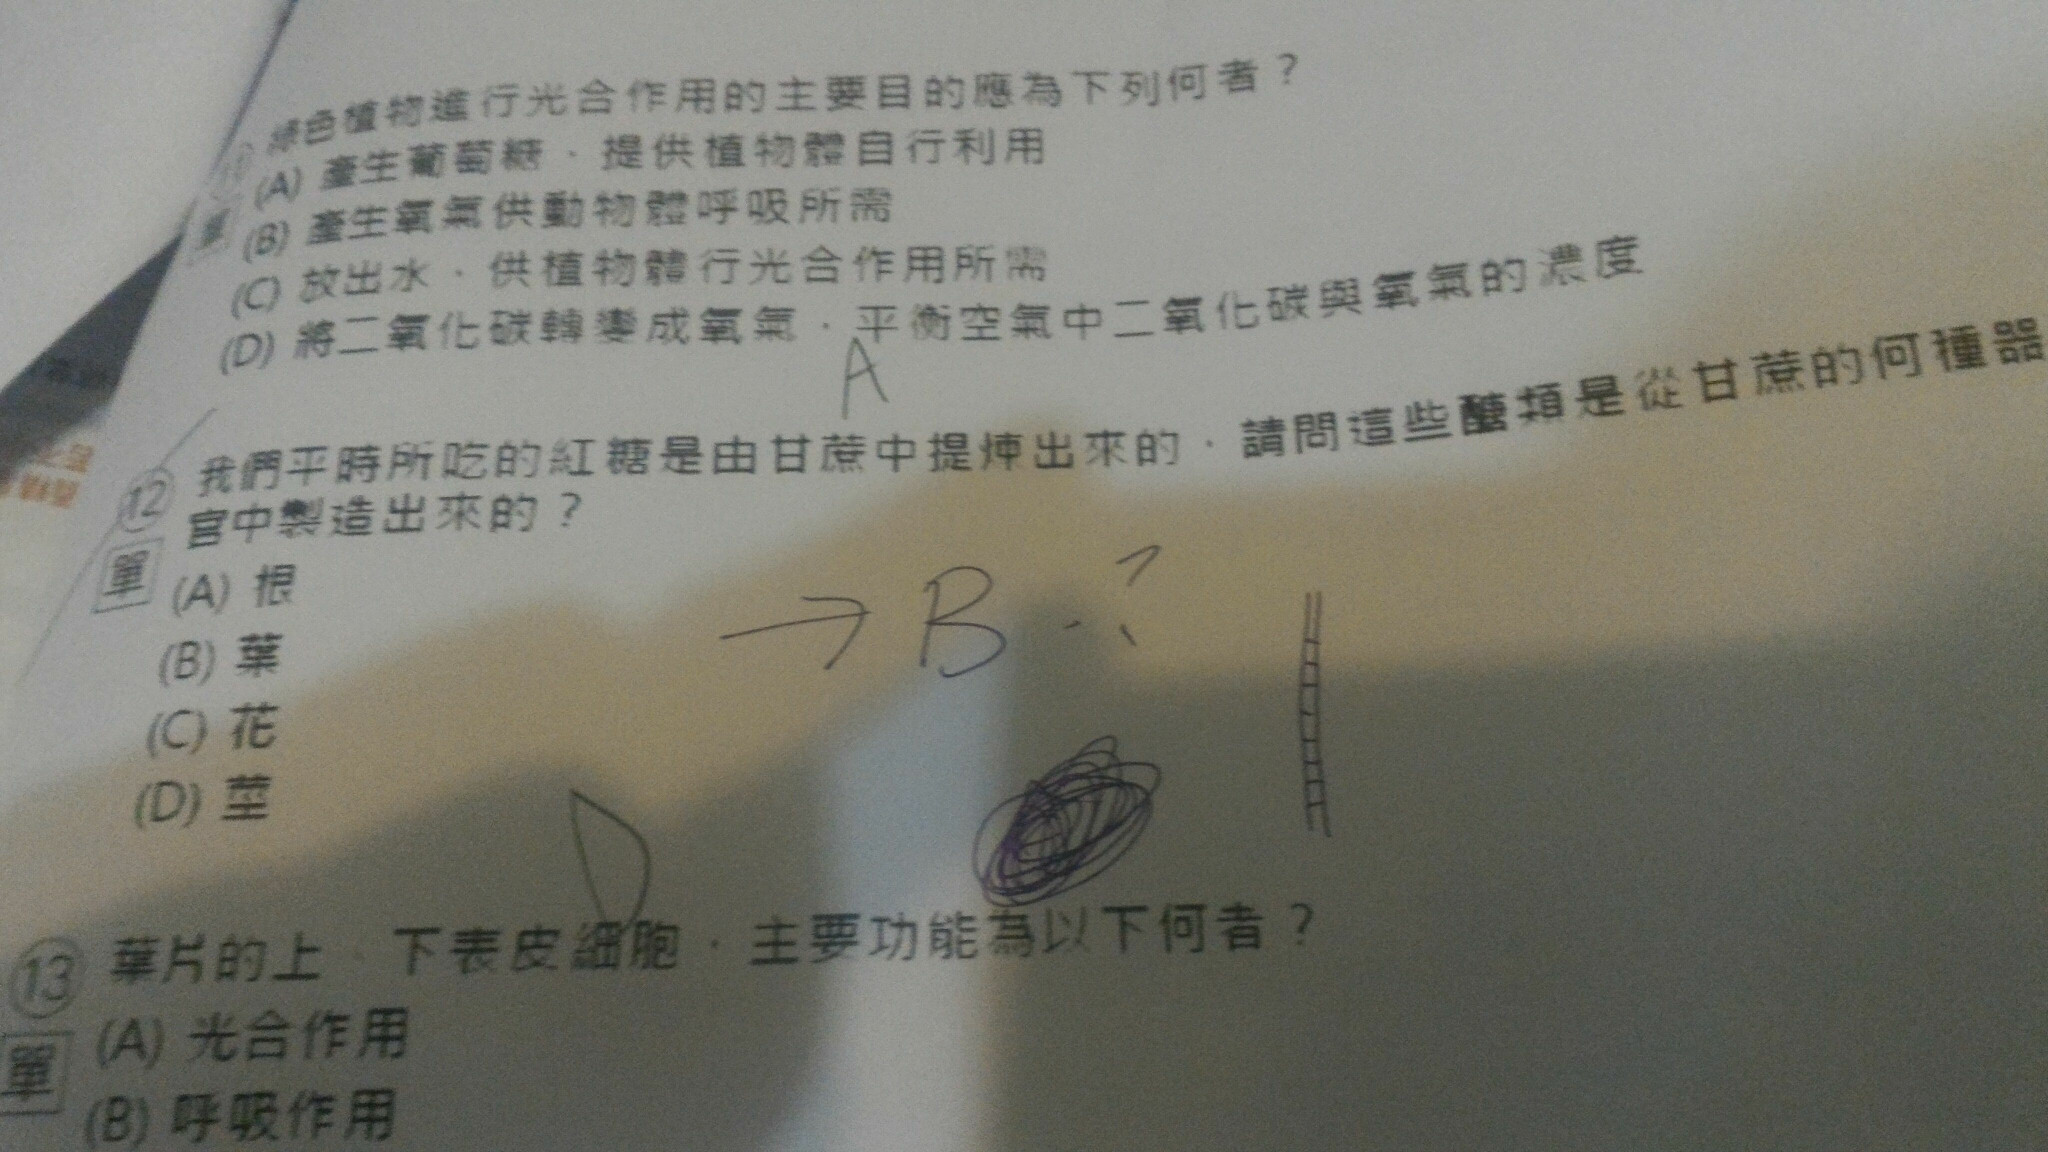 綠色植物進行光合作用的主要目的應為下列何者？
(A) 產生葡萄糖，提供植物體自行利用
單
(B) 產生氧氣供動物體呼吸所需
(C) 放出水，供植物體行光合作用所需
(D) 將二氧化碳轉變成氧氣，平衡空氣中二氧化碳與氧氣的濃度
A
12 我們平時所吃的紅糖是由甘蔗中提煉出來的，請問這些醣類是從甘蔗的何種器
官中製造出來的？
單
(A) 根
→ B ?
(B) 葉
(C) 花
(D) 莖
D
13 葉片的上、下表皮細胞，主要功能為以下何者？
單
(A) 光合作用
(B) 呼吸作用